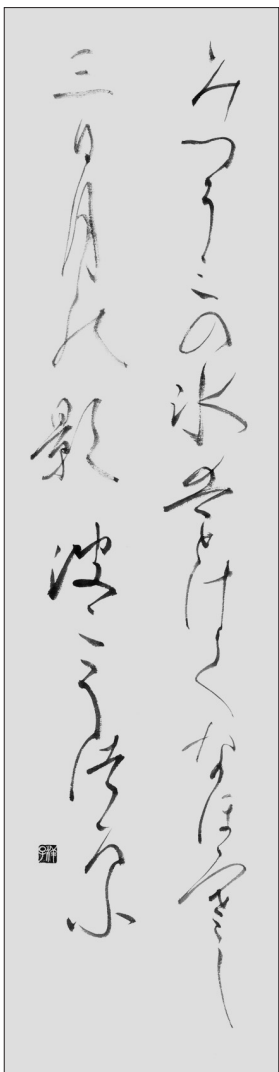 みつうみの氷はとけてなほ寒し
三日月の影波にうつろふ